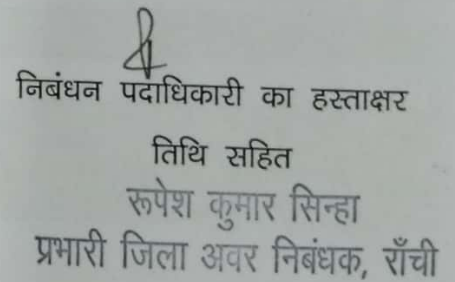 निबंधन पदाधिकारी का हस्ताक्षर
तिथि सहित
रूपेश कुमार सिन्हा
प्रभारी जिला अवर निबंधक, राँची